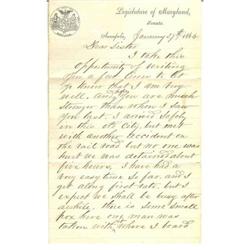 Legislature of Maryland,
Senate.
Annapolis, January 27th 1864
Dear Sister
I take this
opportunity of writing
you a few lines to let
you know that I am very
well, and you are much
stronger than when I saw
you last. I arrived safely
in this city, but met
with another accident on
the rail road but no one was
hurt we was detained about
five hours, I have had a
very easy time so far, and I
get along first rate, but I
expect we shall be busy after
awhile. there is some Small
pox here one man was
taken with where I board